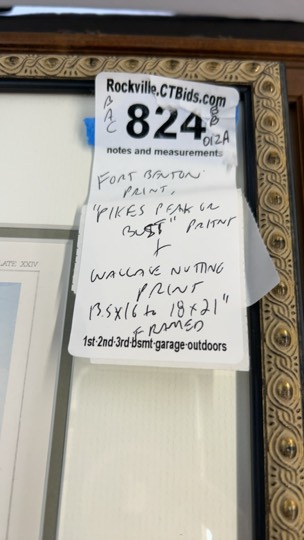 Rockville.CTBids.com
B A C 824 B B 012A
notes and measurements
FORT BENTON
PRINT,
"PIKES PEAK OR
BUST" PRINT
+
WALLACE NUTTING
PRINT
13.5x16 to 18x21"
FRAMED
1st·2nd·3rd·bsmt·garage·outdoors
LATE XXIV